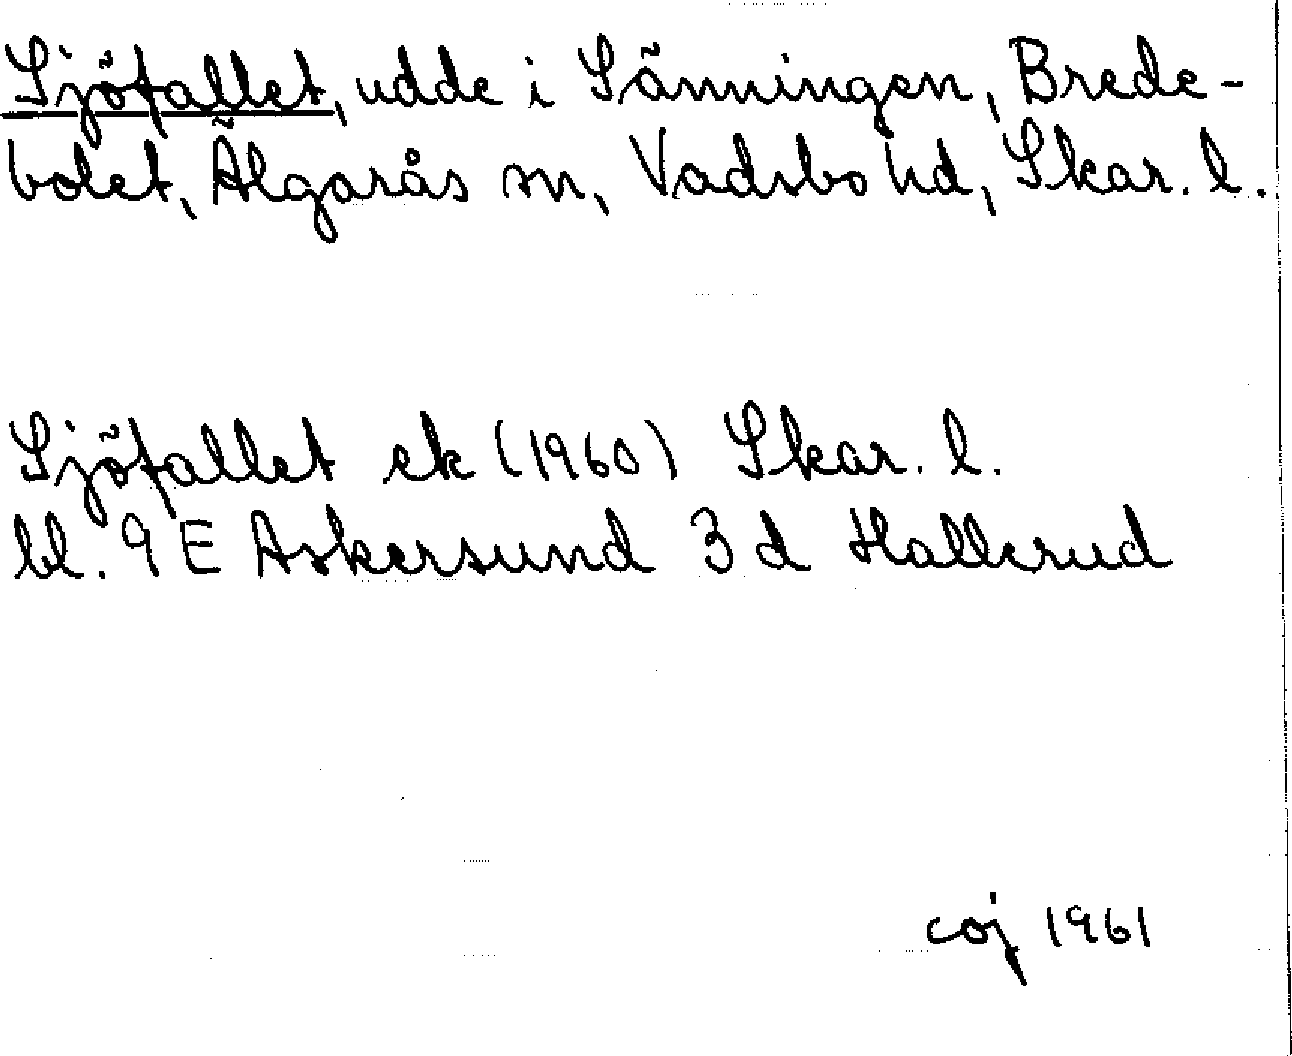 Sjöfallet, udde i Sänningen, Brede-
bolet, Älgarås sn, Vadsbo hd, Skar. l.
Sjöfallet ek (1960) Skar. l.
bl. 9 E Askersund 3 d Hallerud
coj 1961